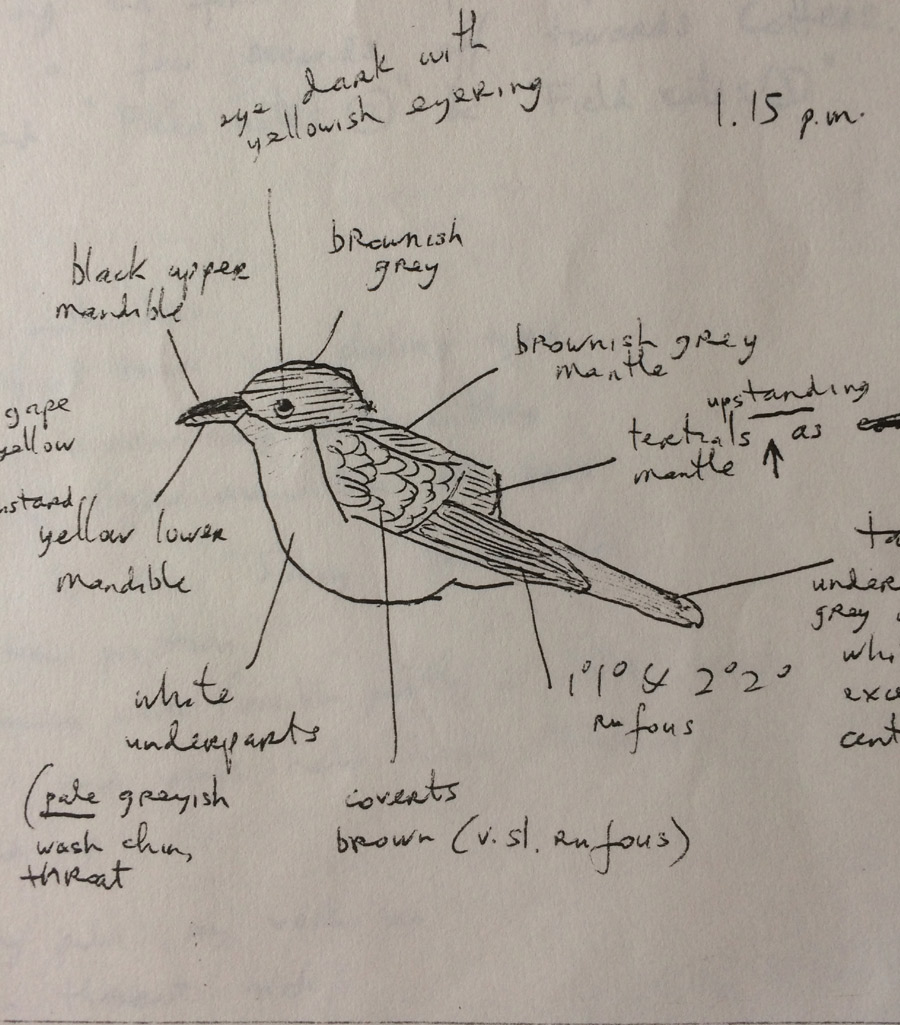 eye dark with
yellowish eyering
1.15 p.m.
black upper
mandible
brownish
grey
brownish grey
mantle
upstanding
tertials as
mantle
gape
yellow
yellow lower
mandible
under
grey
whi
exce
cent
white
underparts
(pale greyish
wash chin,
throat
1°1° & 2°2°
rufous
coverts
brown (v. sl. rufous)